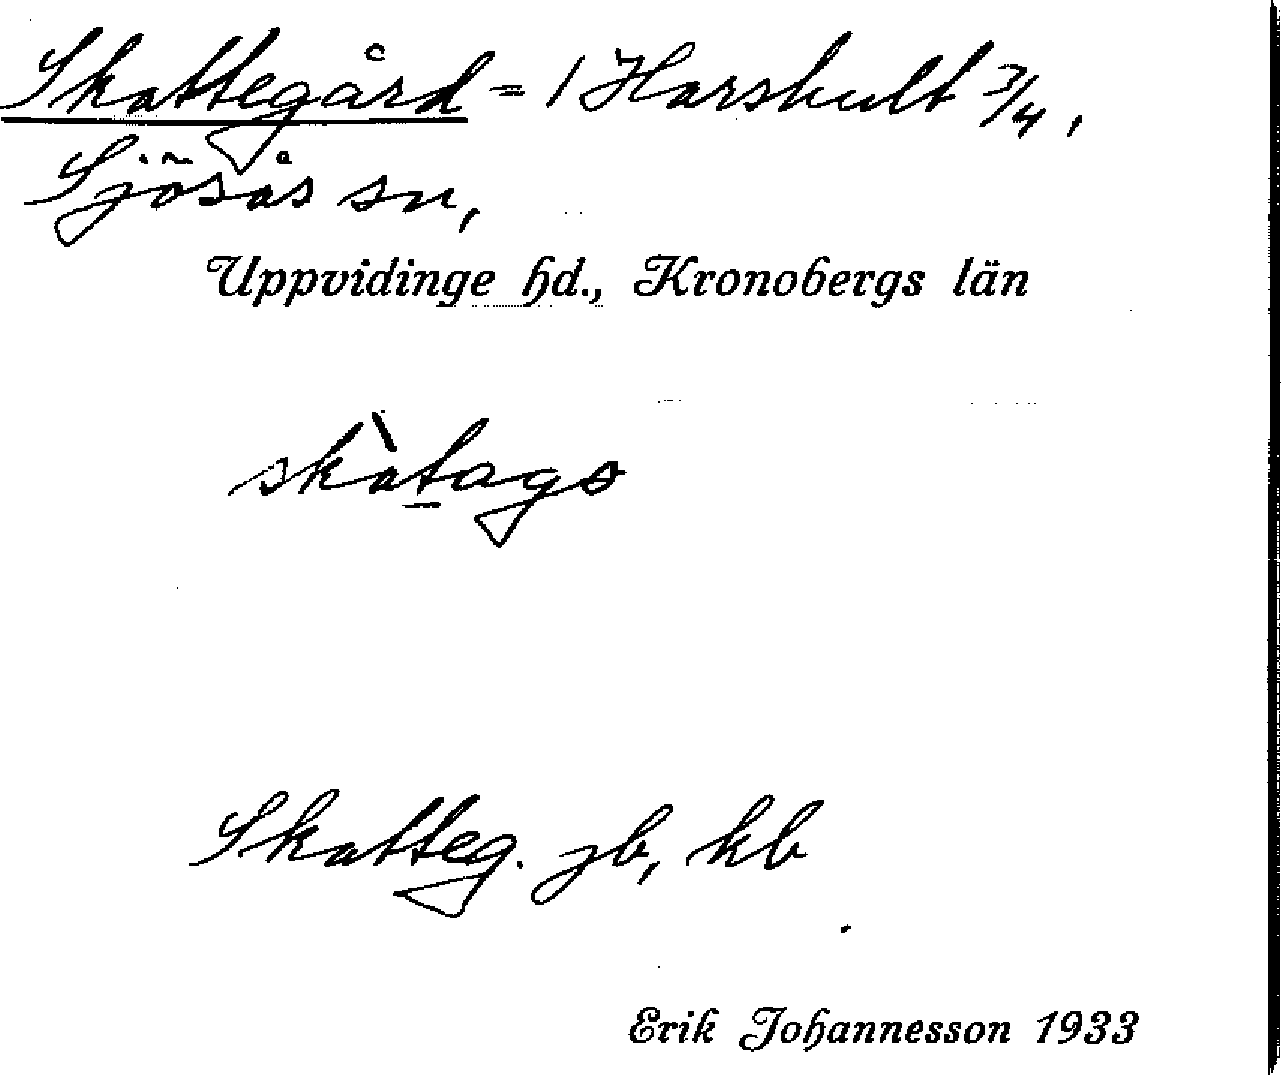 Skattegård = / Harshult 3/4,
Sjösås sn,
Uppvidinge hd., Kronobergs län
skàtago
Skatteg. jb, kb
Erik Johannesson 1933